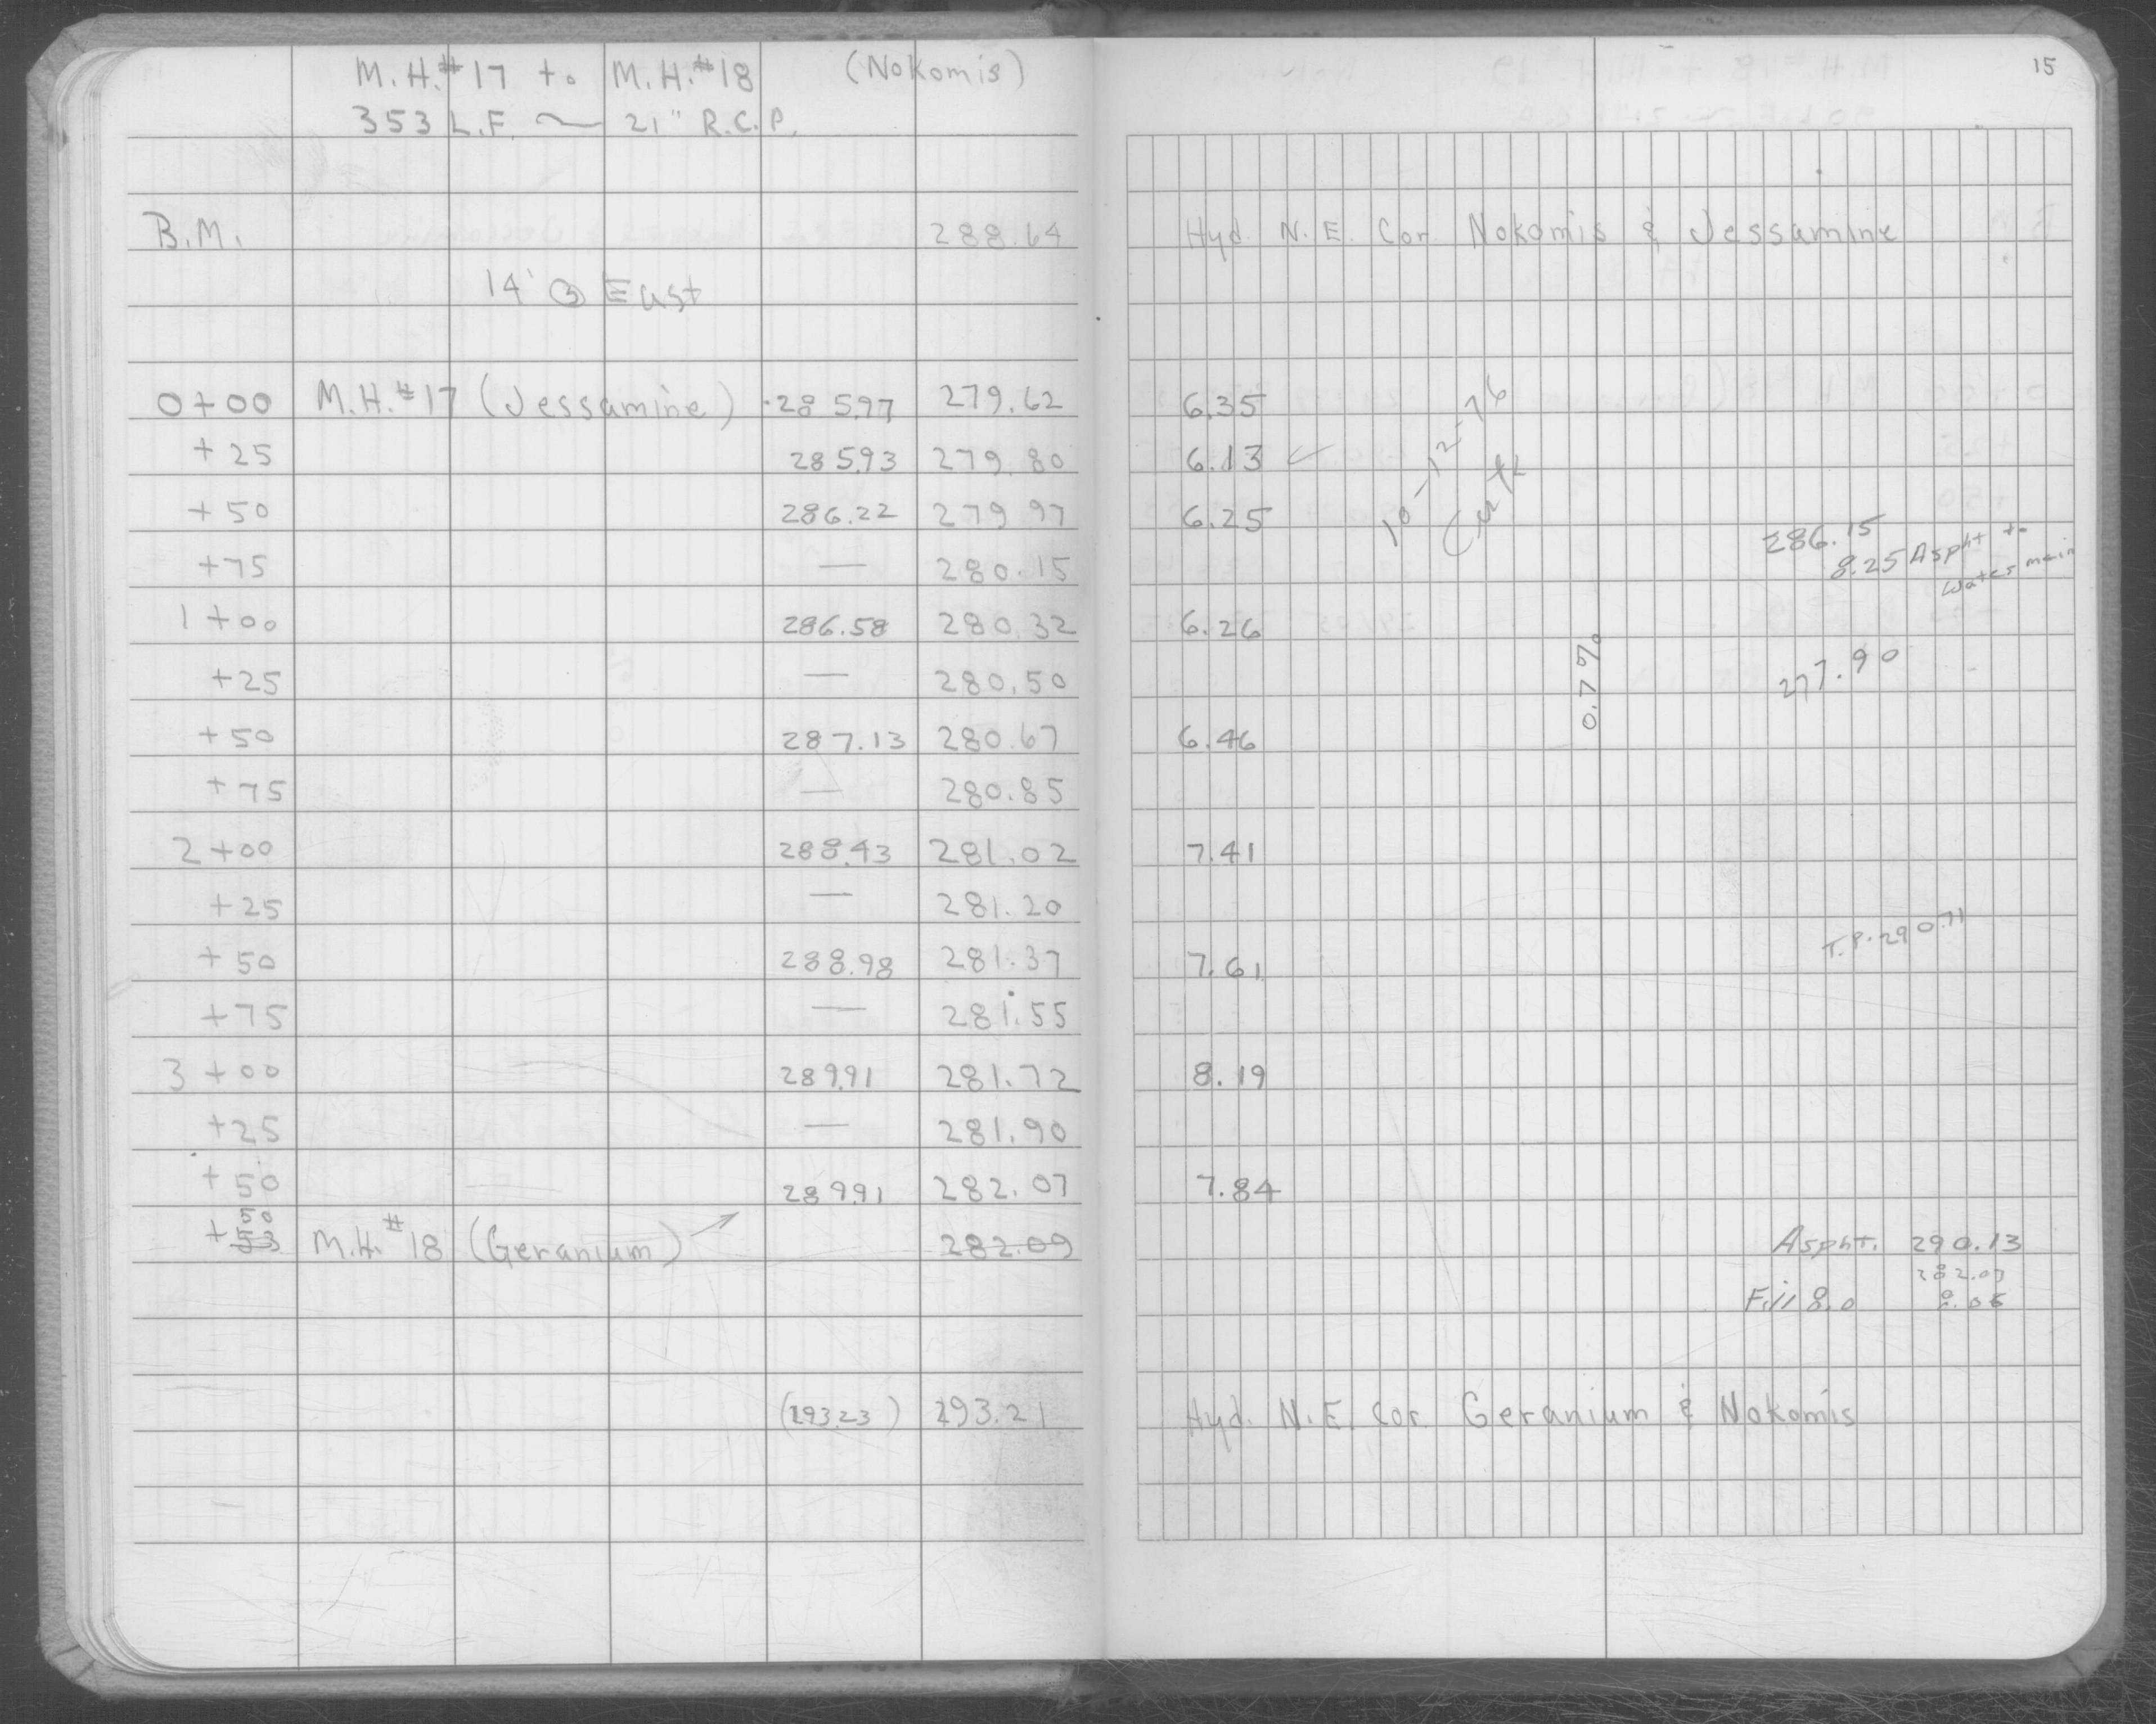 15
M.H.#17 to M.H.#18 (Nokomis)
353 L.F. ~ 21" R.C.P.
B.M. 288.64 Hyd. N.E. Cor. Nokomis & Jessamine
14' East
0+00 M.H.#17 (Jessamine) 285.97 279.62 6.35
+25 285.93 279.80 6.13 ✓
+50 286.22 279.97 6.25
10-12-76
286.15
8.25 Aspht to
Water main
+75 — 280.15
1+00 286.58 280.32 6.26
0.7%
277.90
+25 — 280.50
+50 287.13 280.67 6.46
+75 — 280.85
2+00 288.43 281.02 7.41
+25 — 281.20
T.P. 290.71
+50 288.98 281.37 7.61
+75 — 281.55
3+00 289.91 281.72 8.19
+25 — 281.90
+50 289.91 282.07 7.84
50
+53 M.H.#18 (Geranium) 282.09 Aspht. 290.13
282.07
Fill 8.0 8.06
(293.23) 293.21 Hyd. N.E. Cor. Geranium & Nokomis